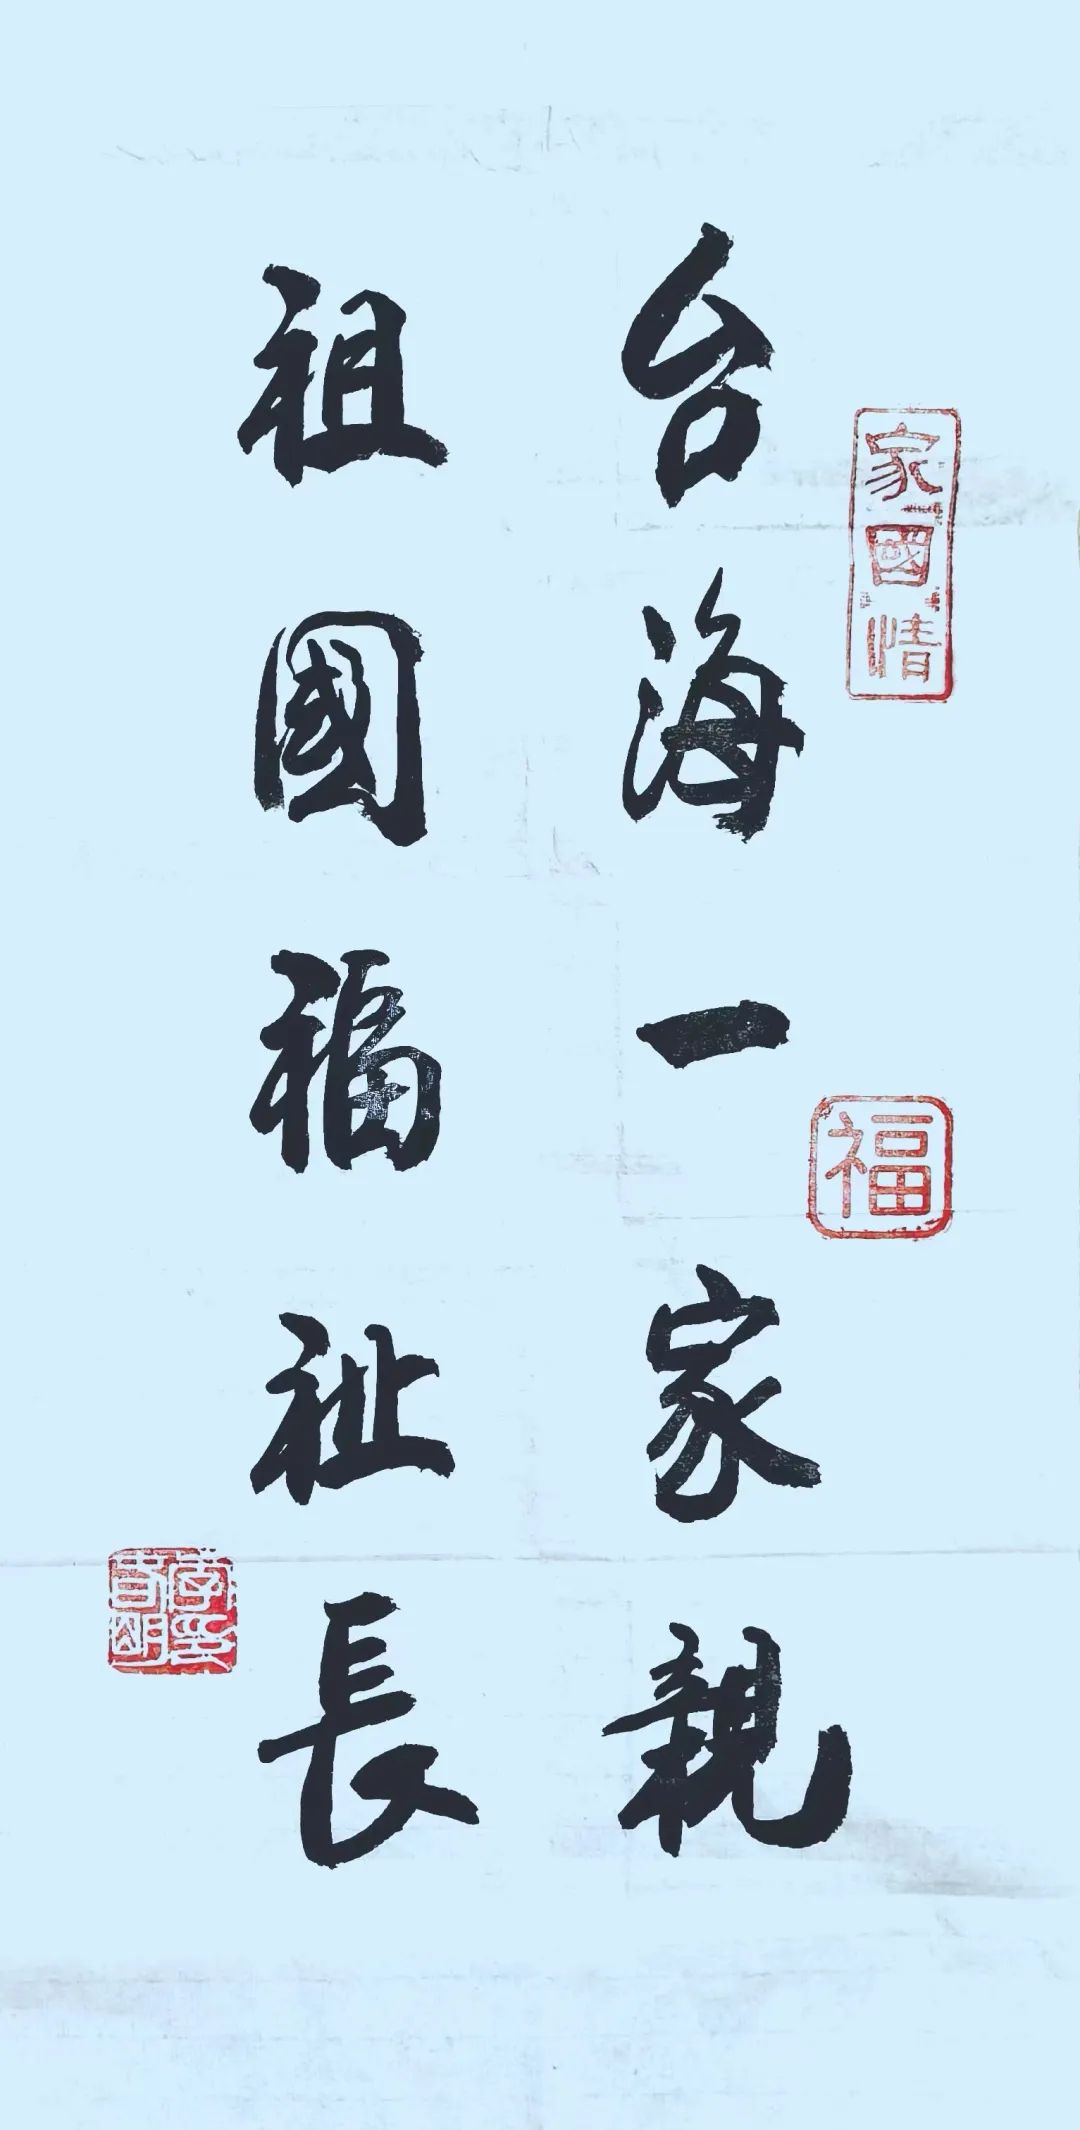 台海一家親
祖國福祉長
家國情
福